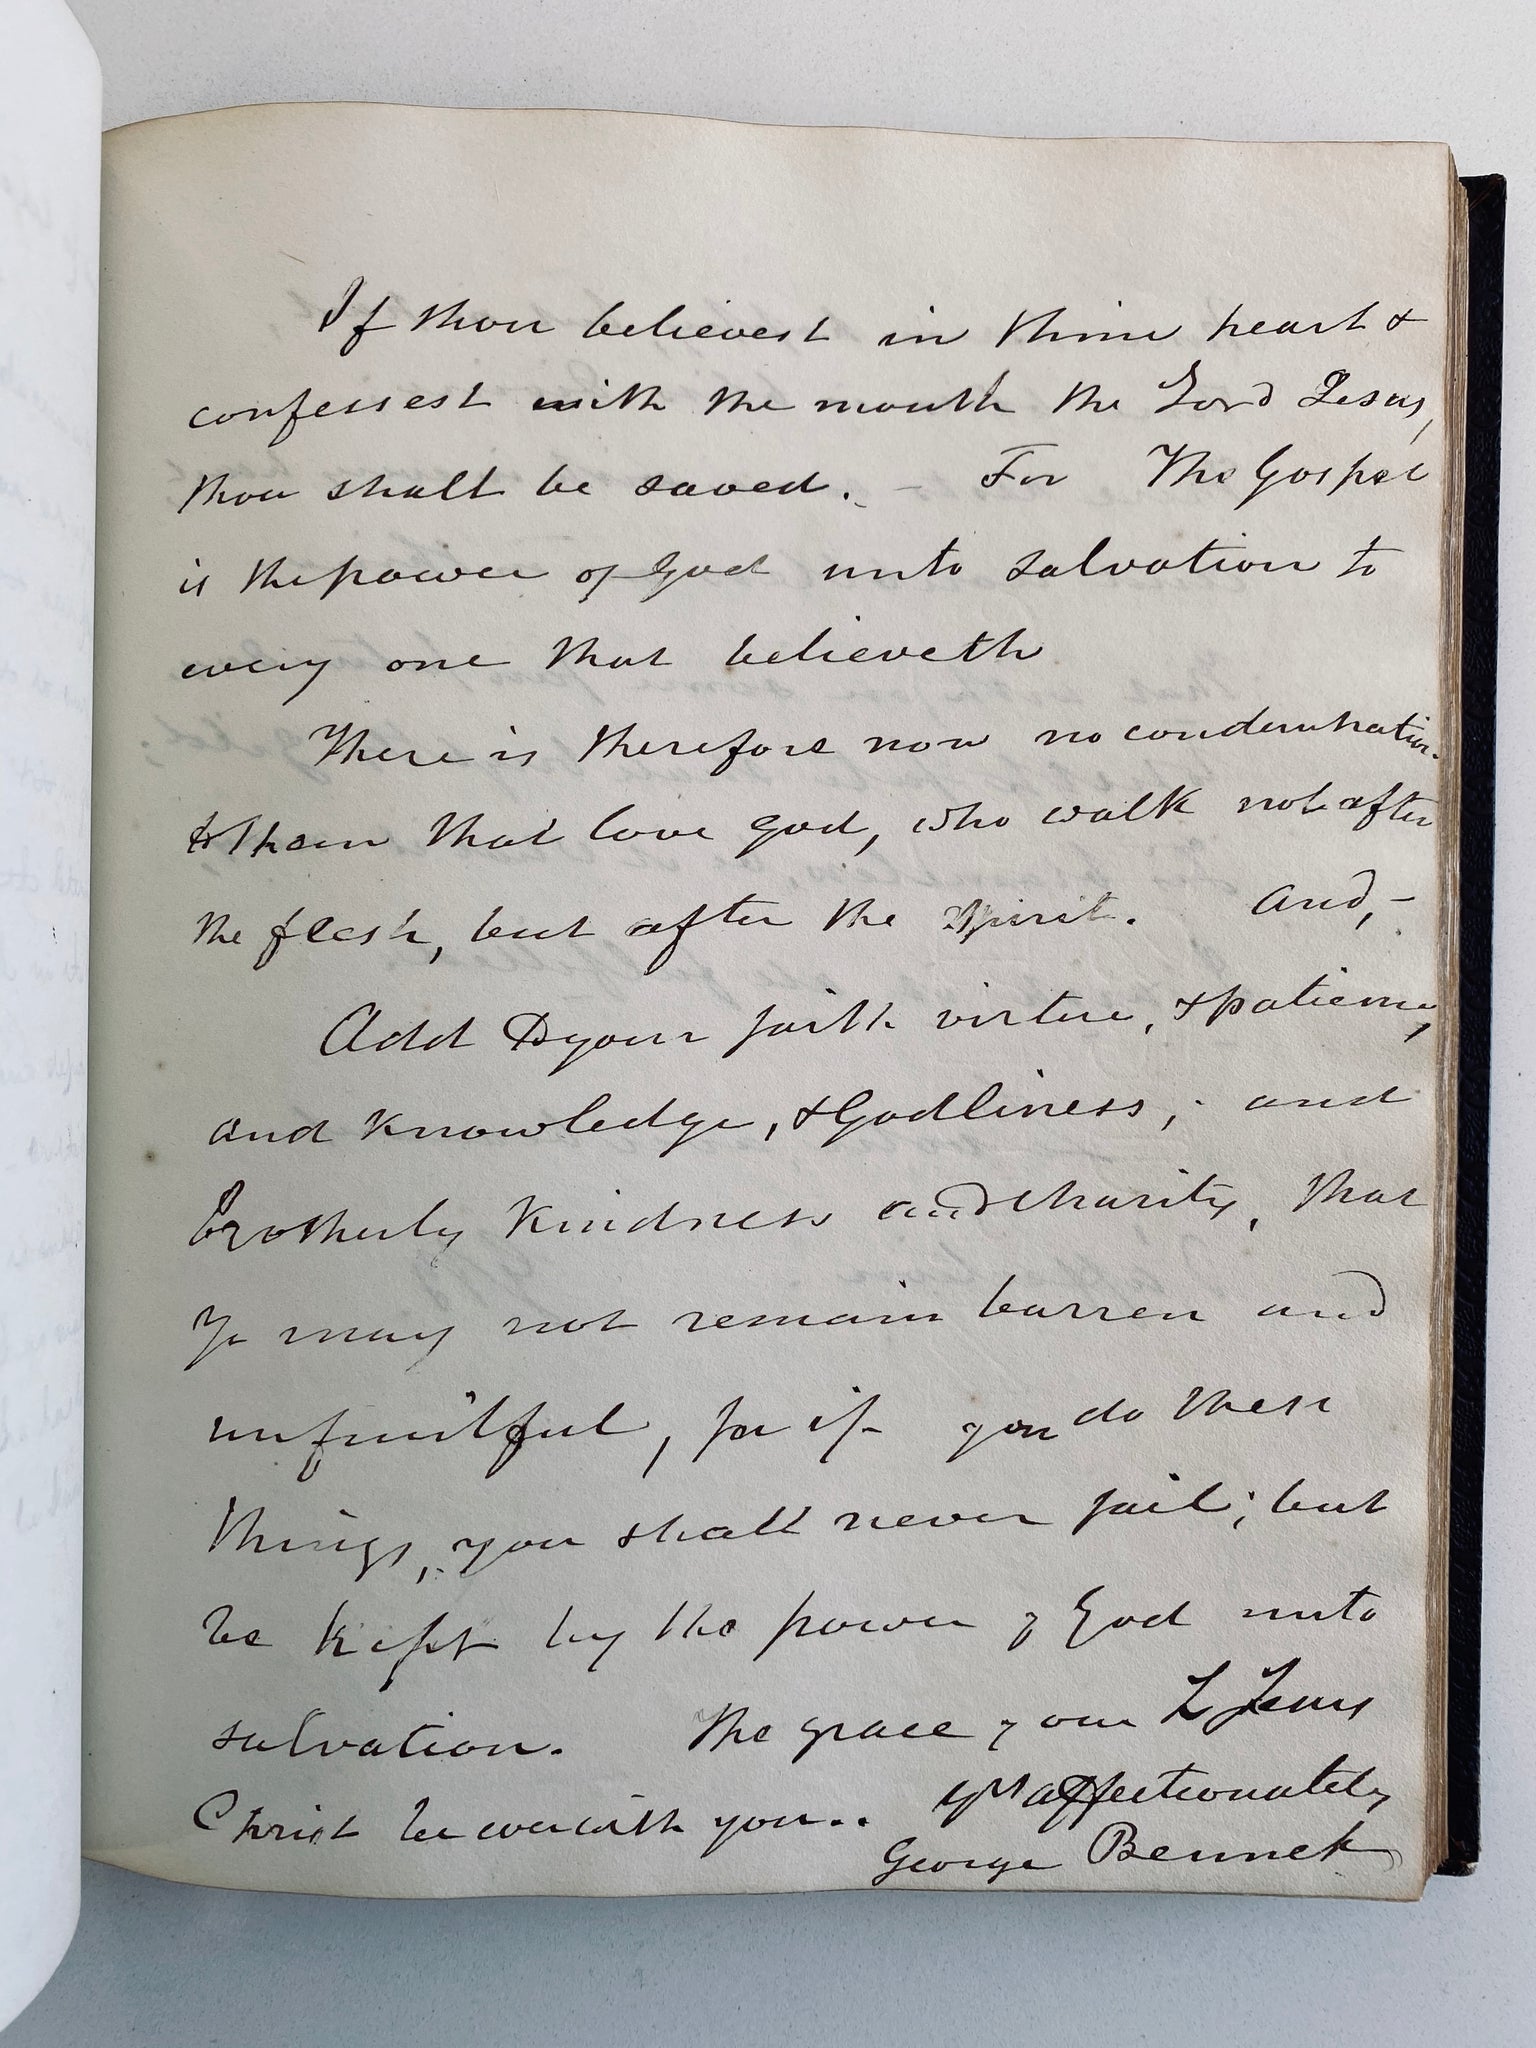 If thou believest in thine heart &
confessest with the mouth the Lord Jesus,
thou shalt be saved. – For The Gospel
is the power of God unto salvation to
every one that believeth
There is therefore now no condemnation
to them that love God, who walk not after
the flesh, but after the Spirit. And,–
Add to your faith virtue, & patience,
and knowledge, & Godliness; and
Brotherly kindness and charity, that
ye may not remain barren and
unfruitful, for if you do these
things, you shall never fail; but
be kept by the power of God unto
salvation. The grace of our L Jesus
Christ be ever with you..
yrs affectionately
George Bennet